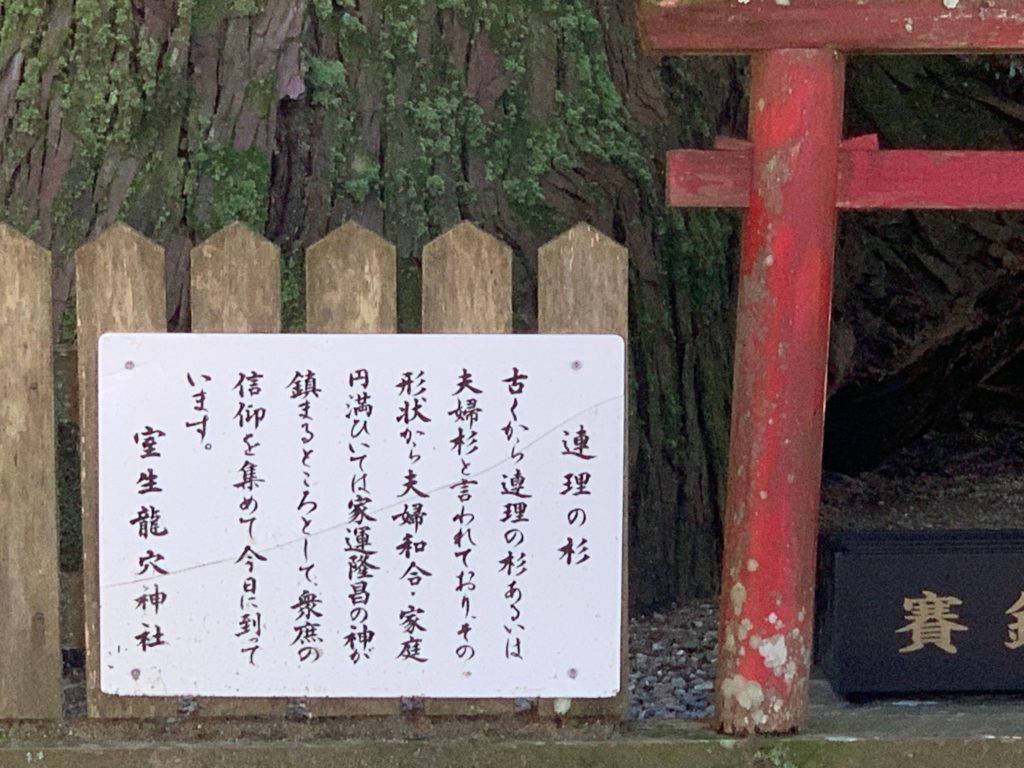 連理の杉
古くから連理の杉あるいは
夫婦杉と言われており、その
形状から夫婦和合・家庭
円満ひいては家運隆昌の神が
鎮まるところとして、衆庶の
信仰を集めて今日に到って
います。
室生龍穴神社
賽